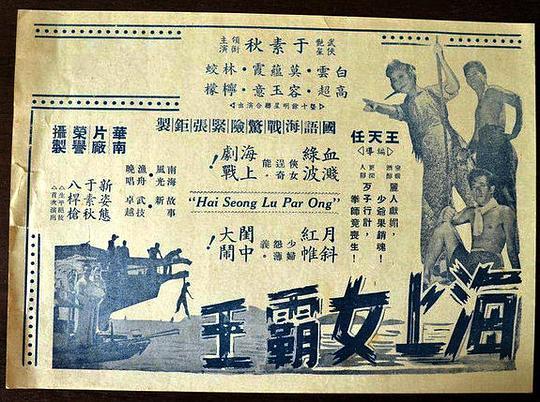 武俠艷星
于素秋
領銜主演
白雲・莫蘊霞・林蛟
高超・容玉意・檸檬
十餘明星聯合演出
國語海戰驚險緊張鉅製
王天任
編導
麗人獻媚，
少爺果銷魂！
歹子行計，
拳師竟喪生！
血濺綠波
俠女逞奇能・
海上劇戰！
"Hai Seong Lu Par Ong"
月斜紅帷
少婦怨薄義・
閨中大鬧！
華南片廠榮譽攝製
南海風光・漁舟晚唱
故事新
武技卓越
新姿態
于素秋
八桿槍
生平絕技
海上女霸王